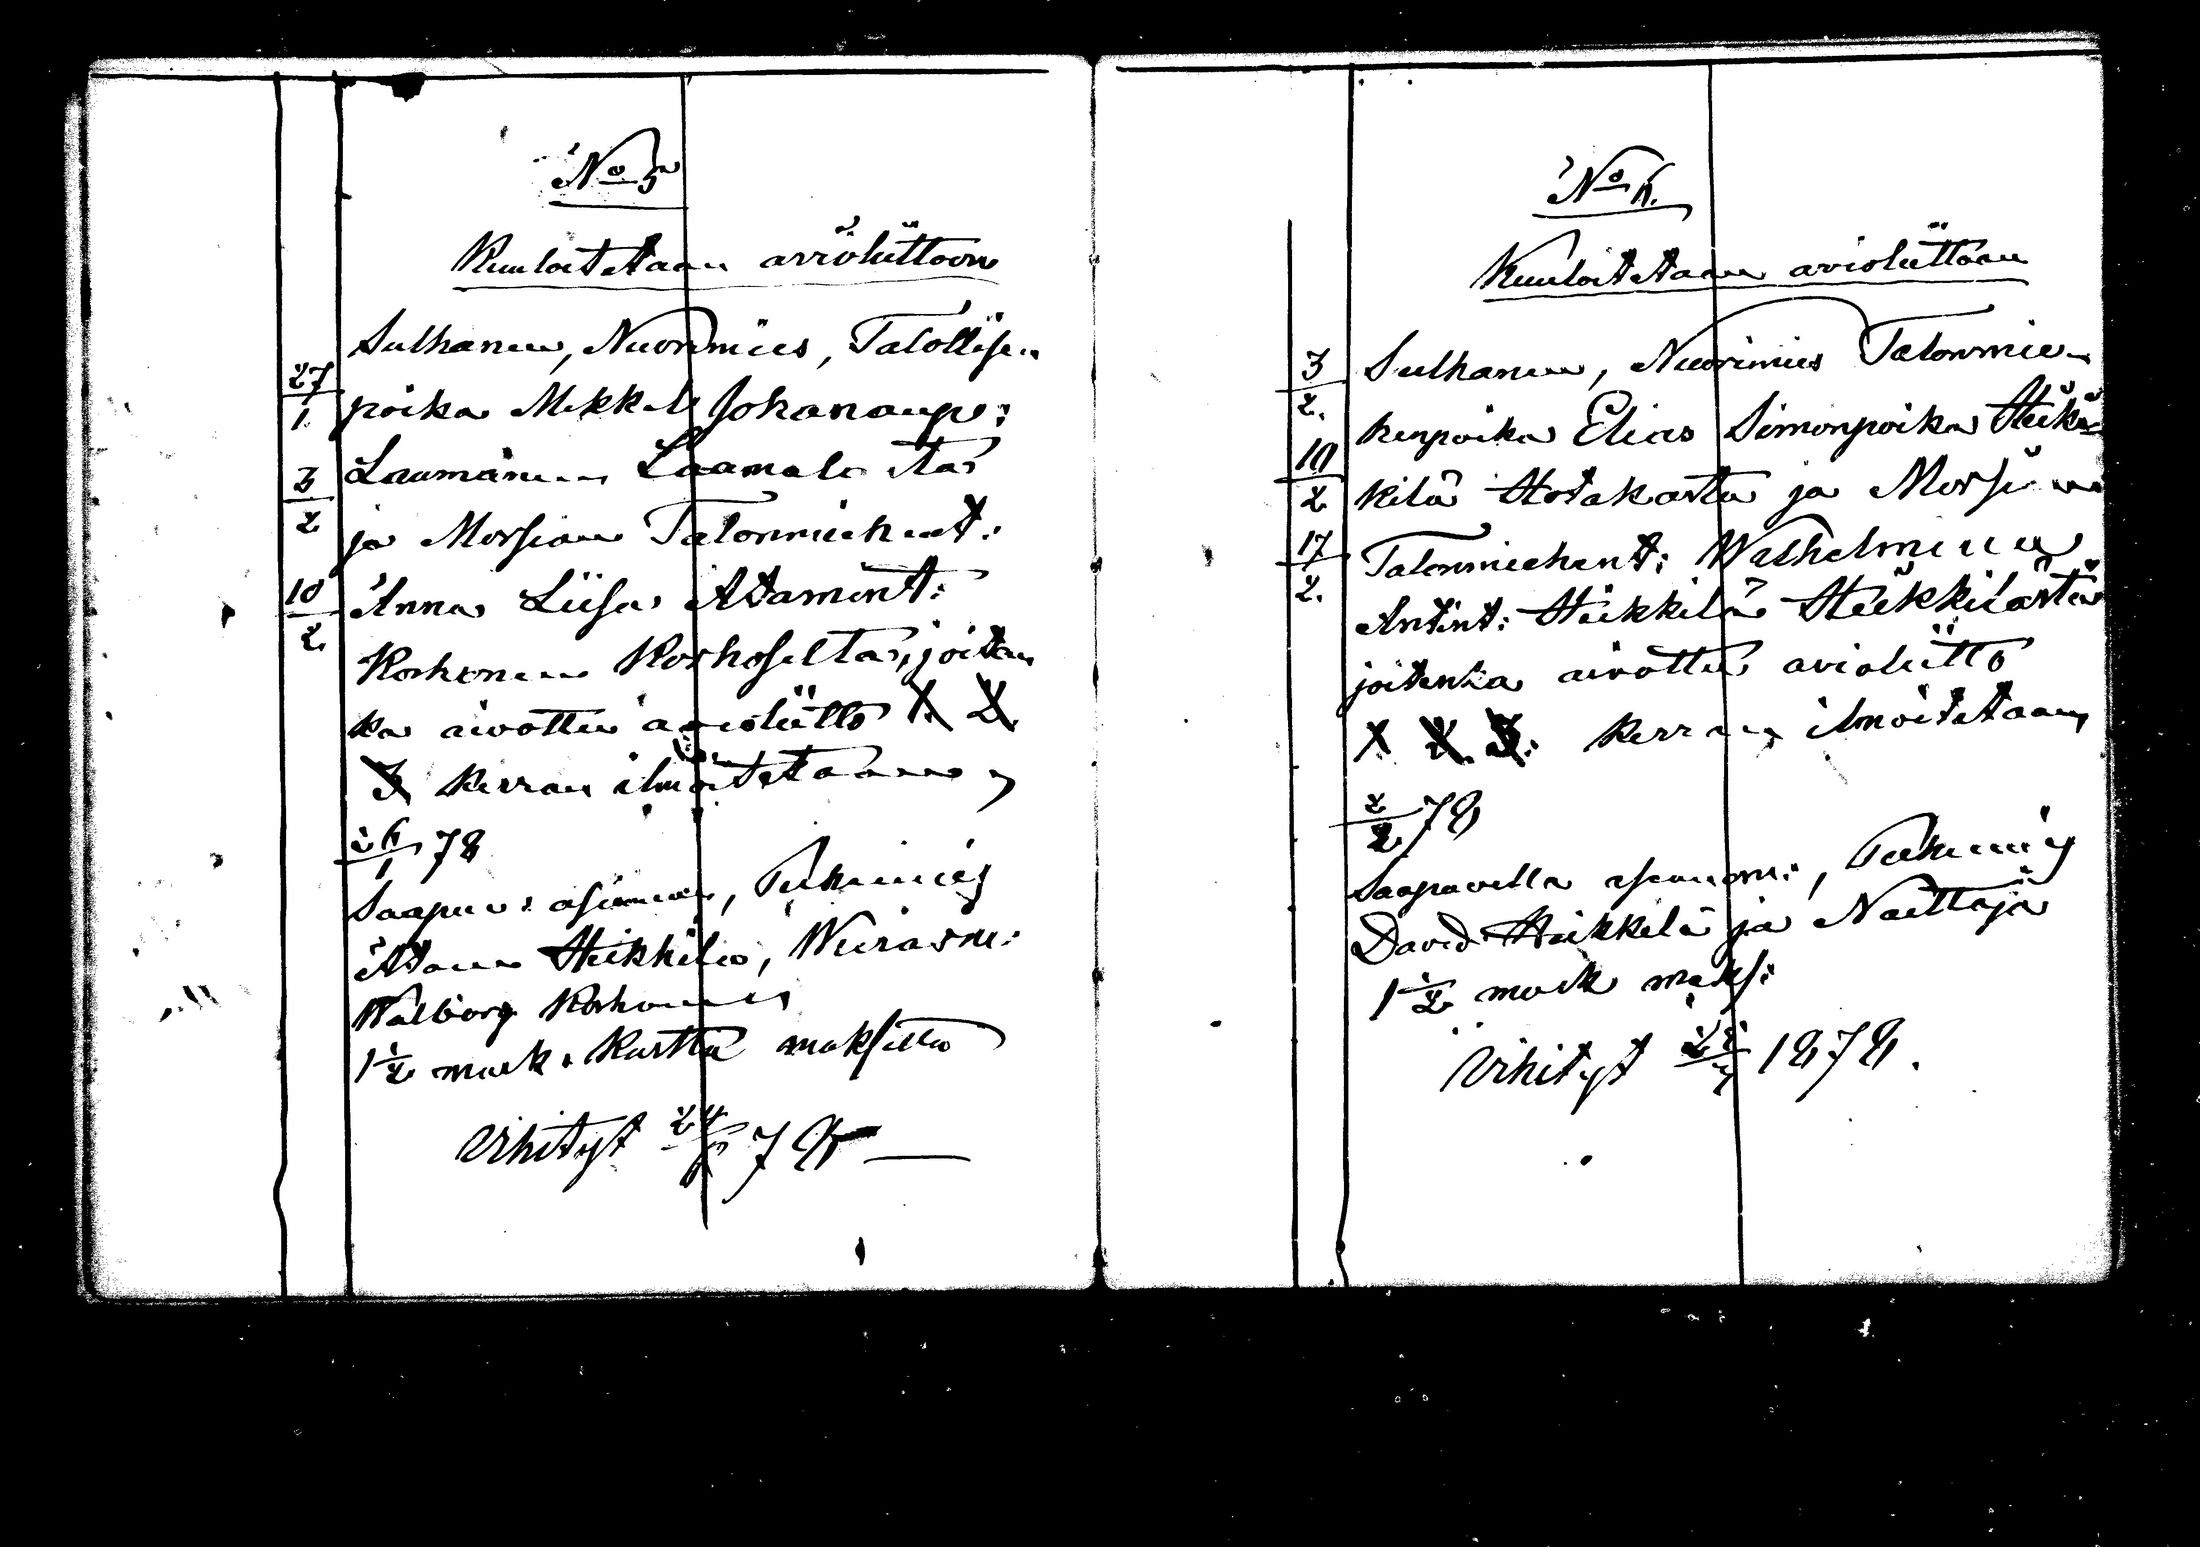 No 5
Kuuloitetaan avioliittoon
Sulhanen, Nuorimies, Talollisen
27/1 poika Mikkel Johananp:
3/2 Laumanen Laamala sta
ja Morsian Talonmiehent:
10/2 Anna Liisa Adamint:
Korhonen Korhoselta, joitan
ka aivottu avioliitto 1. 2.
3 kerran ilmoitetaan,
26/1 78
Saapuv: asianom, Puhemies
Adam Heikkilä,
Walborg Korhonen
1 1/2 mark. maksettu
Vihityt 78
No 6.
Kuuloitetaan avioliittoon
3/2. Sulhanen, Nuorimies Talonmie-
henpoika Elias Simonpoika Heik-
10/2 kilä Hotakasta ja Morsian
17/2. Talonmiehent: Wilhelmiina
Antint: Heikkilä Heikkilästä
joitenka aivottu avioliitto
1 2. 3: kerran ilmoitetaan,
2/2 78
Saapuvilla asianom:, Puhemies
David Heikkilä ja Naittaja
1 1/2 mark maks:
Vihityt 1878.